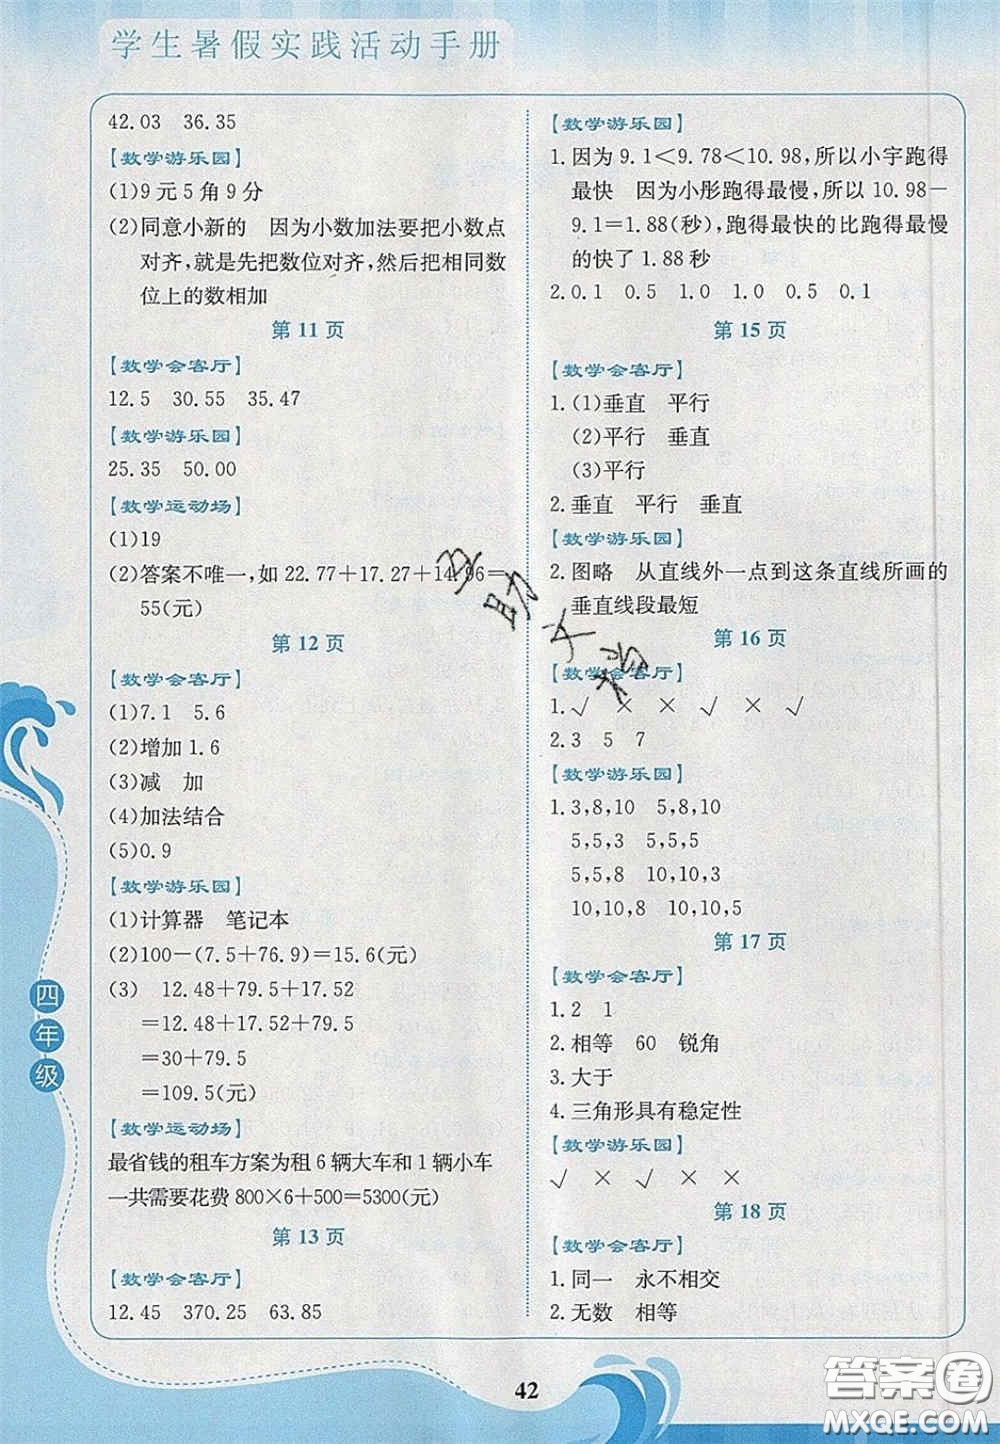 学生暑假实践活动手册
42.03 36.35
【数学游乐园】
(1)9元5角9分
(2)同意小新的 因为小数加法要把小数点
对齐,就是先把数位对齐,然后把相同数
位上的数相加
第11页
【数学会客厅】
12.5 30.55 35.47
【数学游乐园】
25.35 50.00
【数学运动场】
(1)19
(2)答案不唯一,如22.77+17.27+14.96=
55(元)
第12页
【数学会客厅】
(1)7.1 5.6
(2)增加1.6
(3)减 加
(4)加法结合
(5)0.9
【数学游乐园】
(1)计算器 笔记本
(2)100-(7.5+76.9)=15.6(元)
(3) 12.48+79.5+17.52
=12.48+17.52+79.5
=30+79.5
=109.5(元)
【数学运动场】
最省钱的租车方案为租6辆大车和1辆小车
一共需要花费800×6+500=5300(元)
第13页
【数学会客厅】
12.45 370.25 63.85
【数学游乐园】
1.因为9.1<9.78<10.98,所以小宇跑得
最快 因为小彤跑得最慢,所以10.98-
9.1=1.88(秒),跑得最快的比跑得最慢
的快了1.88秒
2.0.1 0.5 1.0 1.0 0.5 0.1
第15页
【数学会客厅】
1.(1)垂直 平行
(2)平行 垂直
(3)平行
2.垂直 平行 垂直
【数学游乐园】
2.图略 从直线外一点到这条直线所画的
垂直线段最短
第16页
【数学会客厅】
1.√ × × √ × √
2.3 5 7
【数学游乐园】
1.3,8,10 5,8,10
5,5,3 5,5,8
5,5,8 10,10,3
10,10,8 10,10,5
第17页
【数学会客厅】
1.2 1
2.相等 60 锐角
3.大于
4.三角形具有稳定性
【数学游乐园】
√ × √ × ×
第18页
【数学会客厅】
1.同一 永不相交
2.无数 相等
四年级
42
答案圈
MXQE.COM